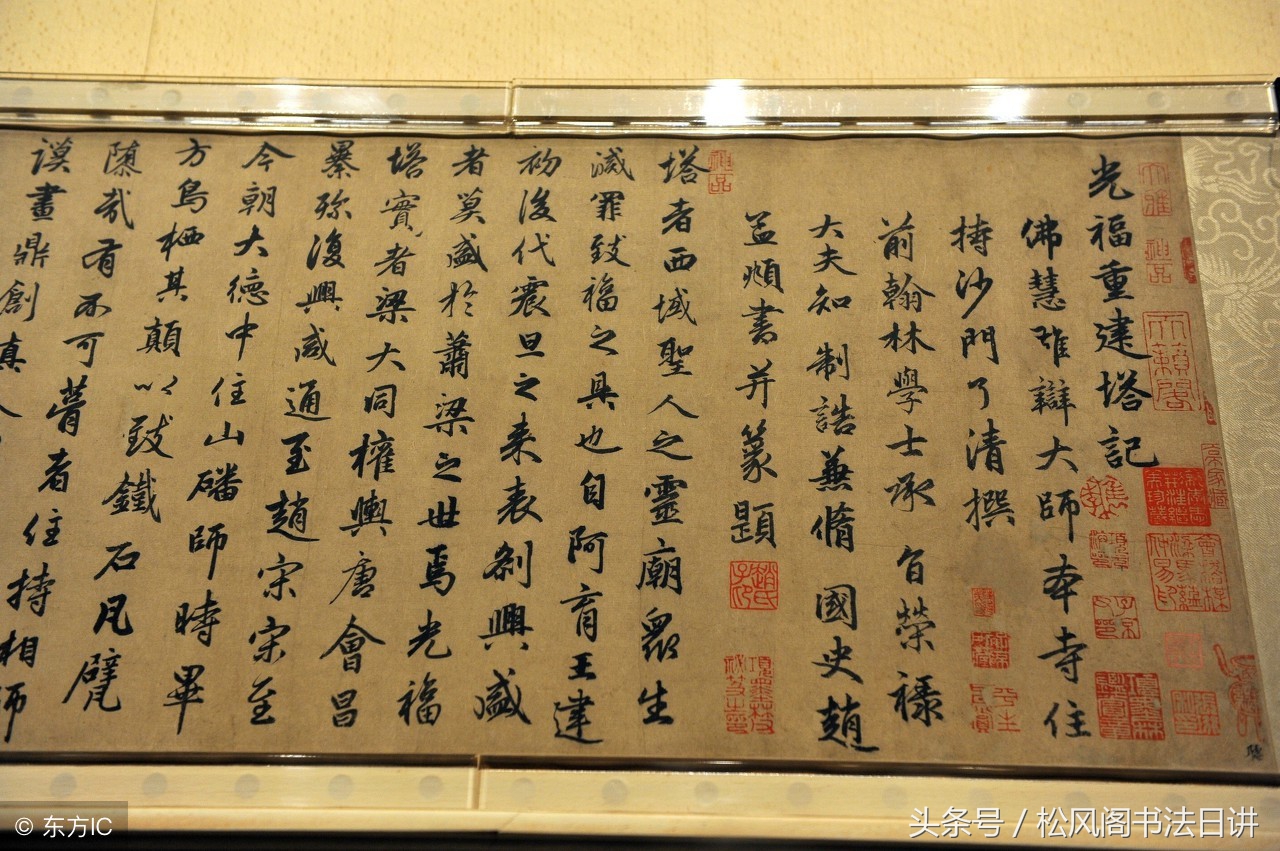 光福重建塔記
佛慧雄辯大師本寺住
持沙門了清撰
前翰林學士承旨榮祿
大夫知制誥兼脩國史趙
孟頫書并篆題
塔者西域聖人之靈廟衆生
滅罪致福之具也自阿育王建
初後代震旦之来表刹興盛
者莫盛於蕭梁之世焉光福
塔實者梁大同權輿唐會昌
㬥殄復興咸通至趙宋宋至
今朝大德中住山磻師時畢
方鳥栖其顛以致鐵石凡甓
隳哉有不可菁者住持相師
謨畫鼎創真人
天籟閣
© 东方IC
头条号 / 松风阁书法日讲